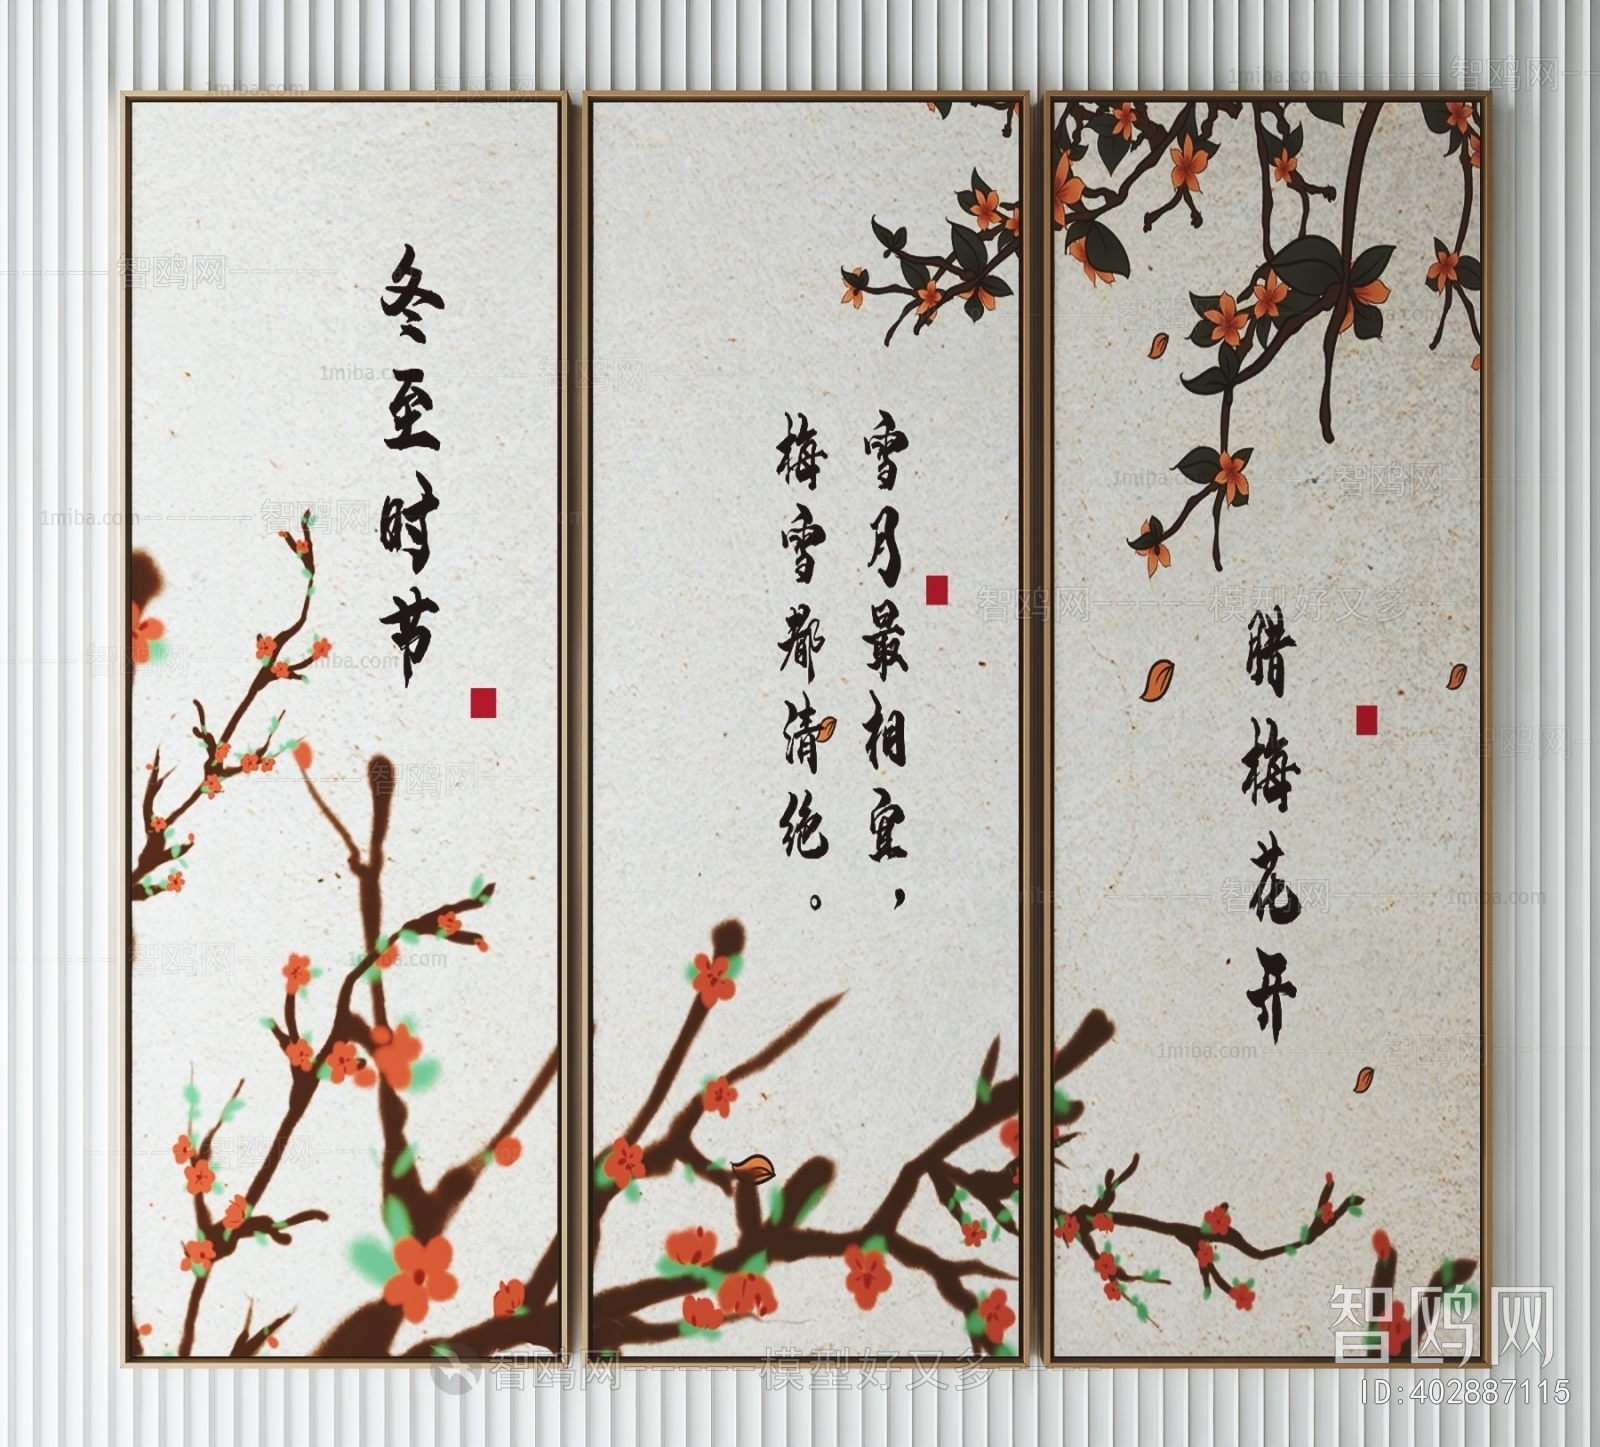 冬至时节
雪月最相宜，
梅雪都清绝。
腊梅花开
智鸥网
模型好又多
1miba.com
智鸥网
ID:402887115